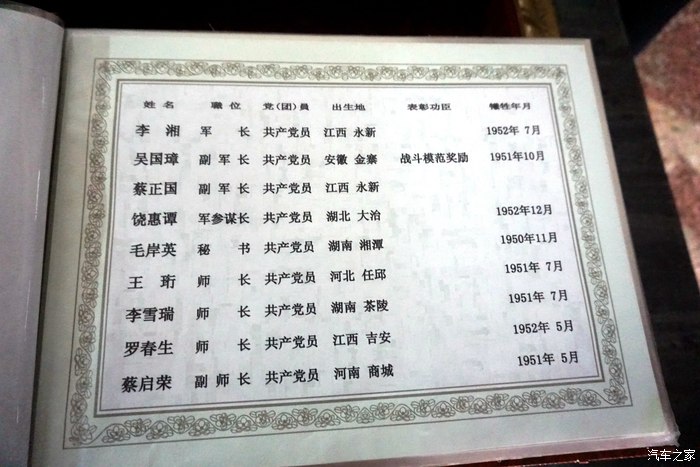 姓名 职位 党(团)员 出生地 表彰功臣 牺牲年月
李湘 军长 共产党员 江西 永新 1952年 7月
吴国璋 副军长 共产党员 安徽 金寨 战斗模范奖励 1951年10月
蔡正国 副军长 共产党员 江西 永新
饶惠谭 军参谋长 共产党员 湖北 大治 1952年12月
毛岸英 秘书 共产党员 湖南 湘潭 1950年11月
王珩 师长 共产党员 河北 任邱 1951年 7月
李雪瑞 师长 共产党员 湖南 茶陵 1951年 7月
罗春生 师长 共产党员 江西 吉安 1952年 5月
蔡启荣 副师长 共产党员 河南 商城 1951年 5月
汽车之家